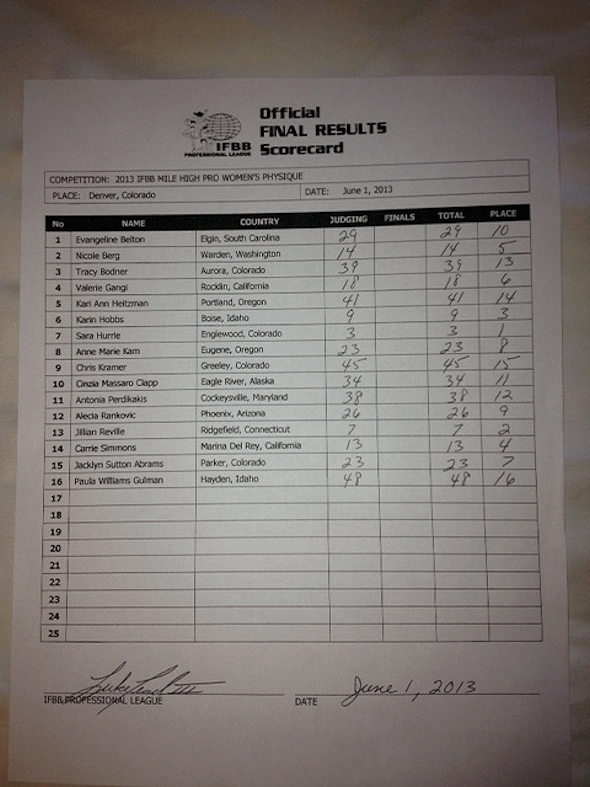 Official
FINAL RESULTS
Scorecard
IFBB
PROFESSIONAL LEAGUE
COMPETITION: 2013 IFBB MILE HIGH PRO WOMEN'S PHYSIQUE
PLACE: Denver, Colorado DATE: June 1, 2013
No NAME COUNTRY JUDGING FINALS TOTAL PLACE
1 Evangeline Belton Elgin, South Carolina 29 29 10
2 Nicole Berg Warden, Washington 14 14 5
3 Tracy Bodner Aurora, Colorado 39 39 13
4 Valerie Gangi Rocklin, California 18 18 6
5 Kari Ann Heitzman Portland, Oregon 41 41 14
6 Karin Hobbs Boise, Idaho 9 9 3
7 Sara Hurrle Englewood, Colorado 3 3 1
8 Anne Marie Kam Eugene, Oregon 23 23 8
9 Chris Kramer Greeley, Colorado 45 45 15
10 Cinzia Massaro Clapp Eagle River, Alaska 34 34 11
11 Antonia Perdikakis Cockeysville, Maryland 38 38 12
12 Alecia Rankovic Phoenix, Arizona 26 26 9
13 Jillian Reville Ridgefield, Connecticut 7 7 2
14 Carrie Simmons Marina Del Rey, California 13 13 4
15 Jacklyn Sutton Abrams Parker, Colorado 23 23 7
16 Paula Williams Gulman Hayden, Idaho 48 48 16
17
18
19
20
21
22
23
24
25
June 1, 2013
IFBB PROFESSIONAL LEAGUE DATE